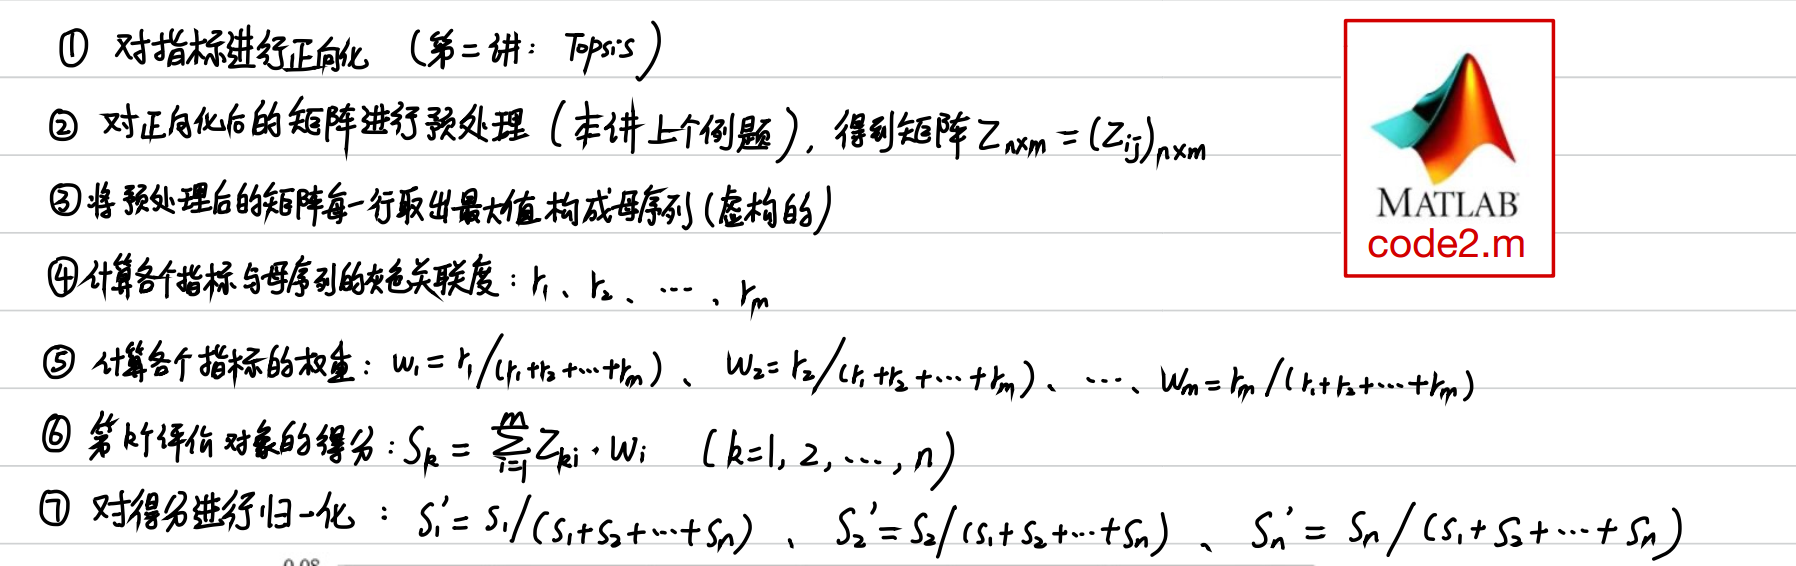 ① 对指标进行正向化 （第二讲： Topsis）
② 对正向化后的矩阵进行预处理（本讲上个例题），得到矩阵 Z_{n×m} = (Z_{ij})_{n×m}
③ 将预处理后的矩阵每一行取出最大值构成母序列（虚构的）
④ 计算各个指标与母序列的灰色关联度：r₁、r₂、…、r_m
⑤ 计算各个指标的权重：w₁ = r₁/(r₁+r₂+…+r_m)、 w₂ = r₂/(r₁+r₂+…+r_m)、 …、 w_m = r_m/(r₁+r₂+…+r_m)
⑥ 第k个评价对象的得分：S_k = \sum_{i=1}^{m} Z_{ki}·w_i （k=1, 2, …, n）
⑦ 对得分进行归一化： S₁' = S₁/(S₁+S₂+…+S_n) 、 S₂' = S₂/(S₁+S₂+…+S_n) 、 S_n' = S_n/(S₁+S₂+…+S_n)
MATLAB
code2.m
0.08